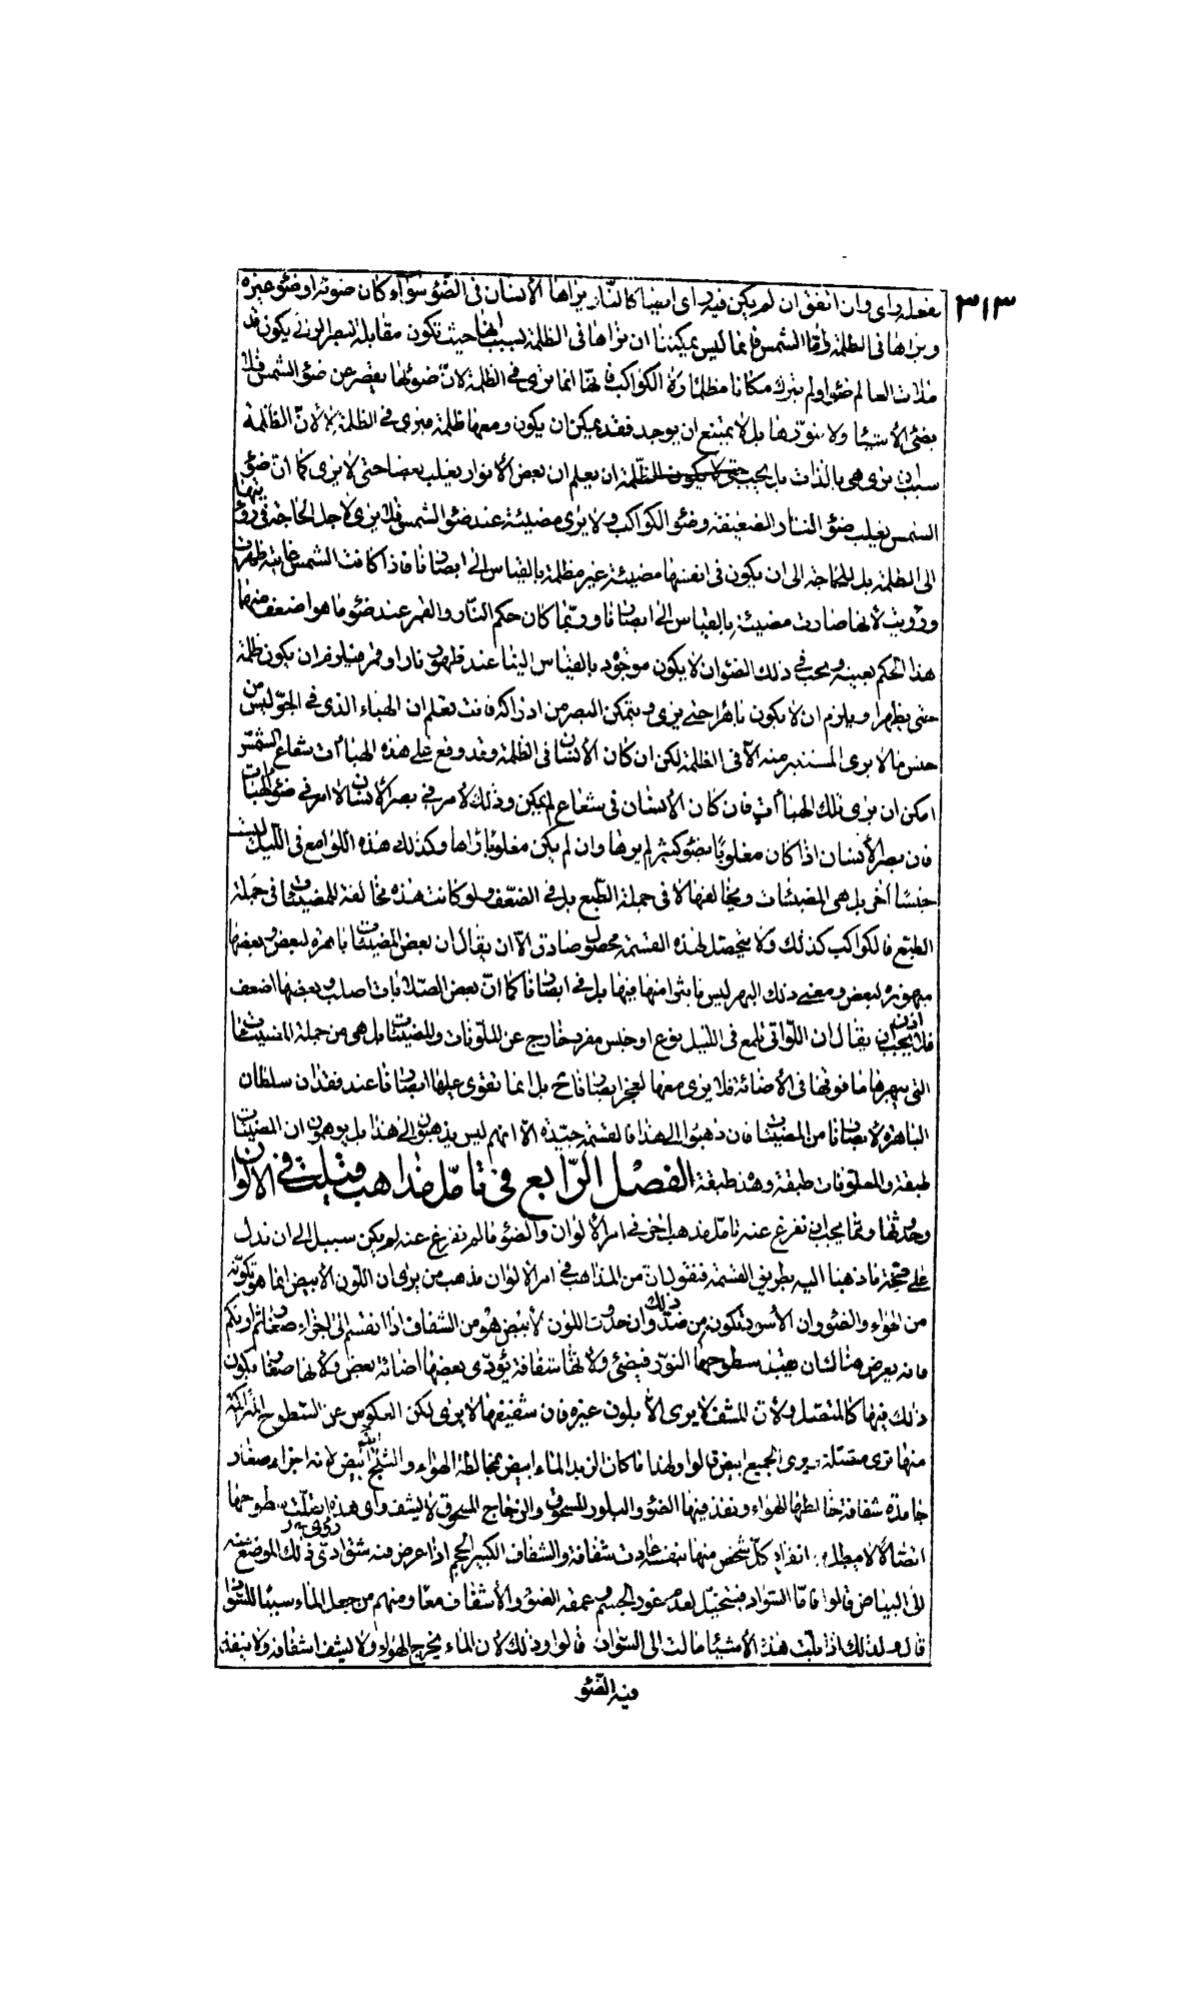 ٣١٣
بفعله راى وان اتفق ان لم يكن فيه راى ايضا كالنار يراها الأنسان فى الضوء سوآء كان ضوئه او ضوء غيره
ويراها فى الظلمة وامّا الشمس فانما ليس يمكننا ان نراها فى الظلمة لسبب انها حيث تكون مقابلة للبصر الرائى يكون قد
ملات العالم ضوءا ولم يترك مكانا مظلما وامّا الكواكب فانها انما ترى فى الظلمة لانّ ضوئها يقصر عن ضوء الشمس فلا
يضئ الأشياء ولا ينوّرها بل لا يمتنع ان يوجد فقد يمكن ان يكون ومعها ظلمة فيرى فى الظلمة لا لانّ الظلمة
سبب ان ترى هى بالذات بل يجب ان يعلم ان بعض الأنوار يغلب بعضا حتى لا يرى كما انّ ضوء
الشمس يغلب ضوء النار الضعيفة وضوء الكواكب ولا يرى مضيئة عند ضوء الشمس فلا يرى لا لاجل الحاجة فى رؤيتها
الى الظلمة بل للحاجة الى ان يكون فى انفسها مضيئة غير مظلمة بالقياس الى ابصارنا فاذا كانت الشمس غايبة ظهرت
ورؤيت لأنها صارت مضيئة بالقياس الى ابصارنا وربّما كان حكم النّار والقمر عند ضوء ما هو اضعف منها
هذا الحكم بعينه ويجب فى ذلك الضوء ان لا يكون موجود بالقياس الينا عند ظهور نار او قمر فيلزم ان يكون ظلمة
حتى يظهرا ويلزم ان لا يكون باهرا حتى يرى ويتمكن البصر من ادراكه فانت تعلم ان الهباء الذى فى الجوّ ليس من
جنس ما لا يرى المستنير منه الّا فى الظلمة لكن ان كان الأنسان فى الظلمة وقد وقع على هذه الهباات شعاع الشمس
امكن ان يرى تلك الهباات فان كان الأنسان فى شعاع لم يمكن وذلك لأمر فى بصر الأنسان لا لامر فى ضوء الهباات
فان بصر الأنسان اذا كان مغلوبا بضوء كثير لم يرها وان لم يكن مغلوبا راها وكذلك هذه اللوامع فى الليل ليست
جنسا آخر بل هى المضيئات ويخالفها لا فى جملة الطبع بل فى الضعف ولو كانت هذه مخالفة للمضيئات فى جملة
الطبع فالكواكب كذلك ولا يتحصّل لهذه القسمة محصول صادق الّا ان يقال ان بعض المضيئات باهرة لبعض وبعضها
مبهورة لبعض ومعنى ذلك البهر ليس تاثيرا منها فيها بل فى ابصارنا كما انّ بعض الصلابات اصلب وبعضها اضعف
فلا يجب اذن ان يقال ان اللّواتى تلمع فى الليل نوع او جنس مفرد خارج عن الملونات والمضيئات بل هى من جملة المضيئات
التى يبهرها ما فوقها فى الأضائة فلا يرى معها لعجز ابصارنا ح بل انما تقوى عليها ابصارنا عند فقدان سلطان
الباهرة لأبصارنا من المضيئات فان ذهبوا الى هذا فالقسمة جيّدة الّا انهم ليس يذهبون الى هذا بل يوهمون ان المضيئات
طبقة والملونات طبقة وهذه طبقة الفصل الرّابع فى تامّل مذاهب قيلت فى الالوان
وحدوثها وممّا يجب ان نفرغ عنه تامّل مذهب اخر فى امر الألوان والضوء فما لم نفرغ عنه لم يكن سبيل الى ان ندلّ
على صحّة ما ذهبنا اليه بطريق القسمة فنقول ان من المذاهب فى امر الألوان مذهب من يرى ان اللّون الأبيض انما هو تكوّنه
من الهواء والضوء وان الأسود تكون من ضدّ ذلك وان حدوث اللون الأبيض هو من الشفاف اذا انقسم الى اجزاء صغار ثم ارتكم
فانه يعرض هنالك ان يقبل سطوحها النور فيضئ ولانها شفافة يؤدّى بعضها اضائة بعض ولانها صغار يكون
ذلك فيها كالمتصل ولانّ المشف لا يرى الّا بلون غيره فان شفيفها لا يرى لكن العكوس عن السّطوح المتراكمة
منها ترى متصلة فيرى الجميع ابيض قالوا ولهذا ما كان الزبد الماء ابيض لمخالطة الهواء والثلج ايضا ابيض لانه اجزاء صغار
جامدة شفافة خالطها الهواء ونفذ فيها الضوء والبلور المسحوق والزجاج المسحوق لا يشف واى هذه اتصلت سطوحها
اتصالا يبطل به انفراد كلّ شخص منها بنفسه عادت شفافة والشفاف الكبير الحجم اذا عرض فيه شق ادّى ذلك الموضع منه
الى البياض قالوا فامّا السّواد فيتخيّل لعدم غور الجسم وعمقه الضوء والأشفاف معا ومنهم من جعل الماء سببا للسّواد
قال ولذلك اذا بلّت هذه الأشياء مالت الى السّواد قالوا وذلك لأن الماء يخرج الهواء ولا يشف اشفافه ولا ينفذ
فيه الضّوء